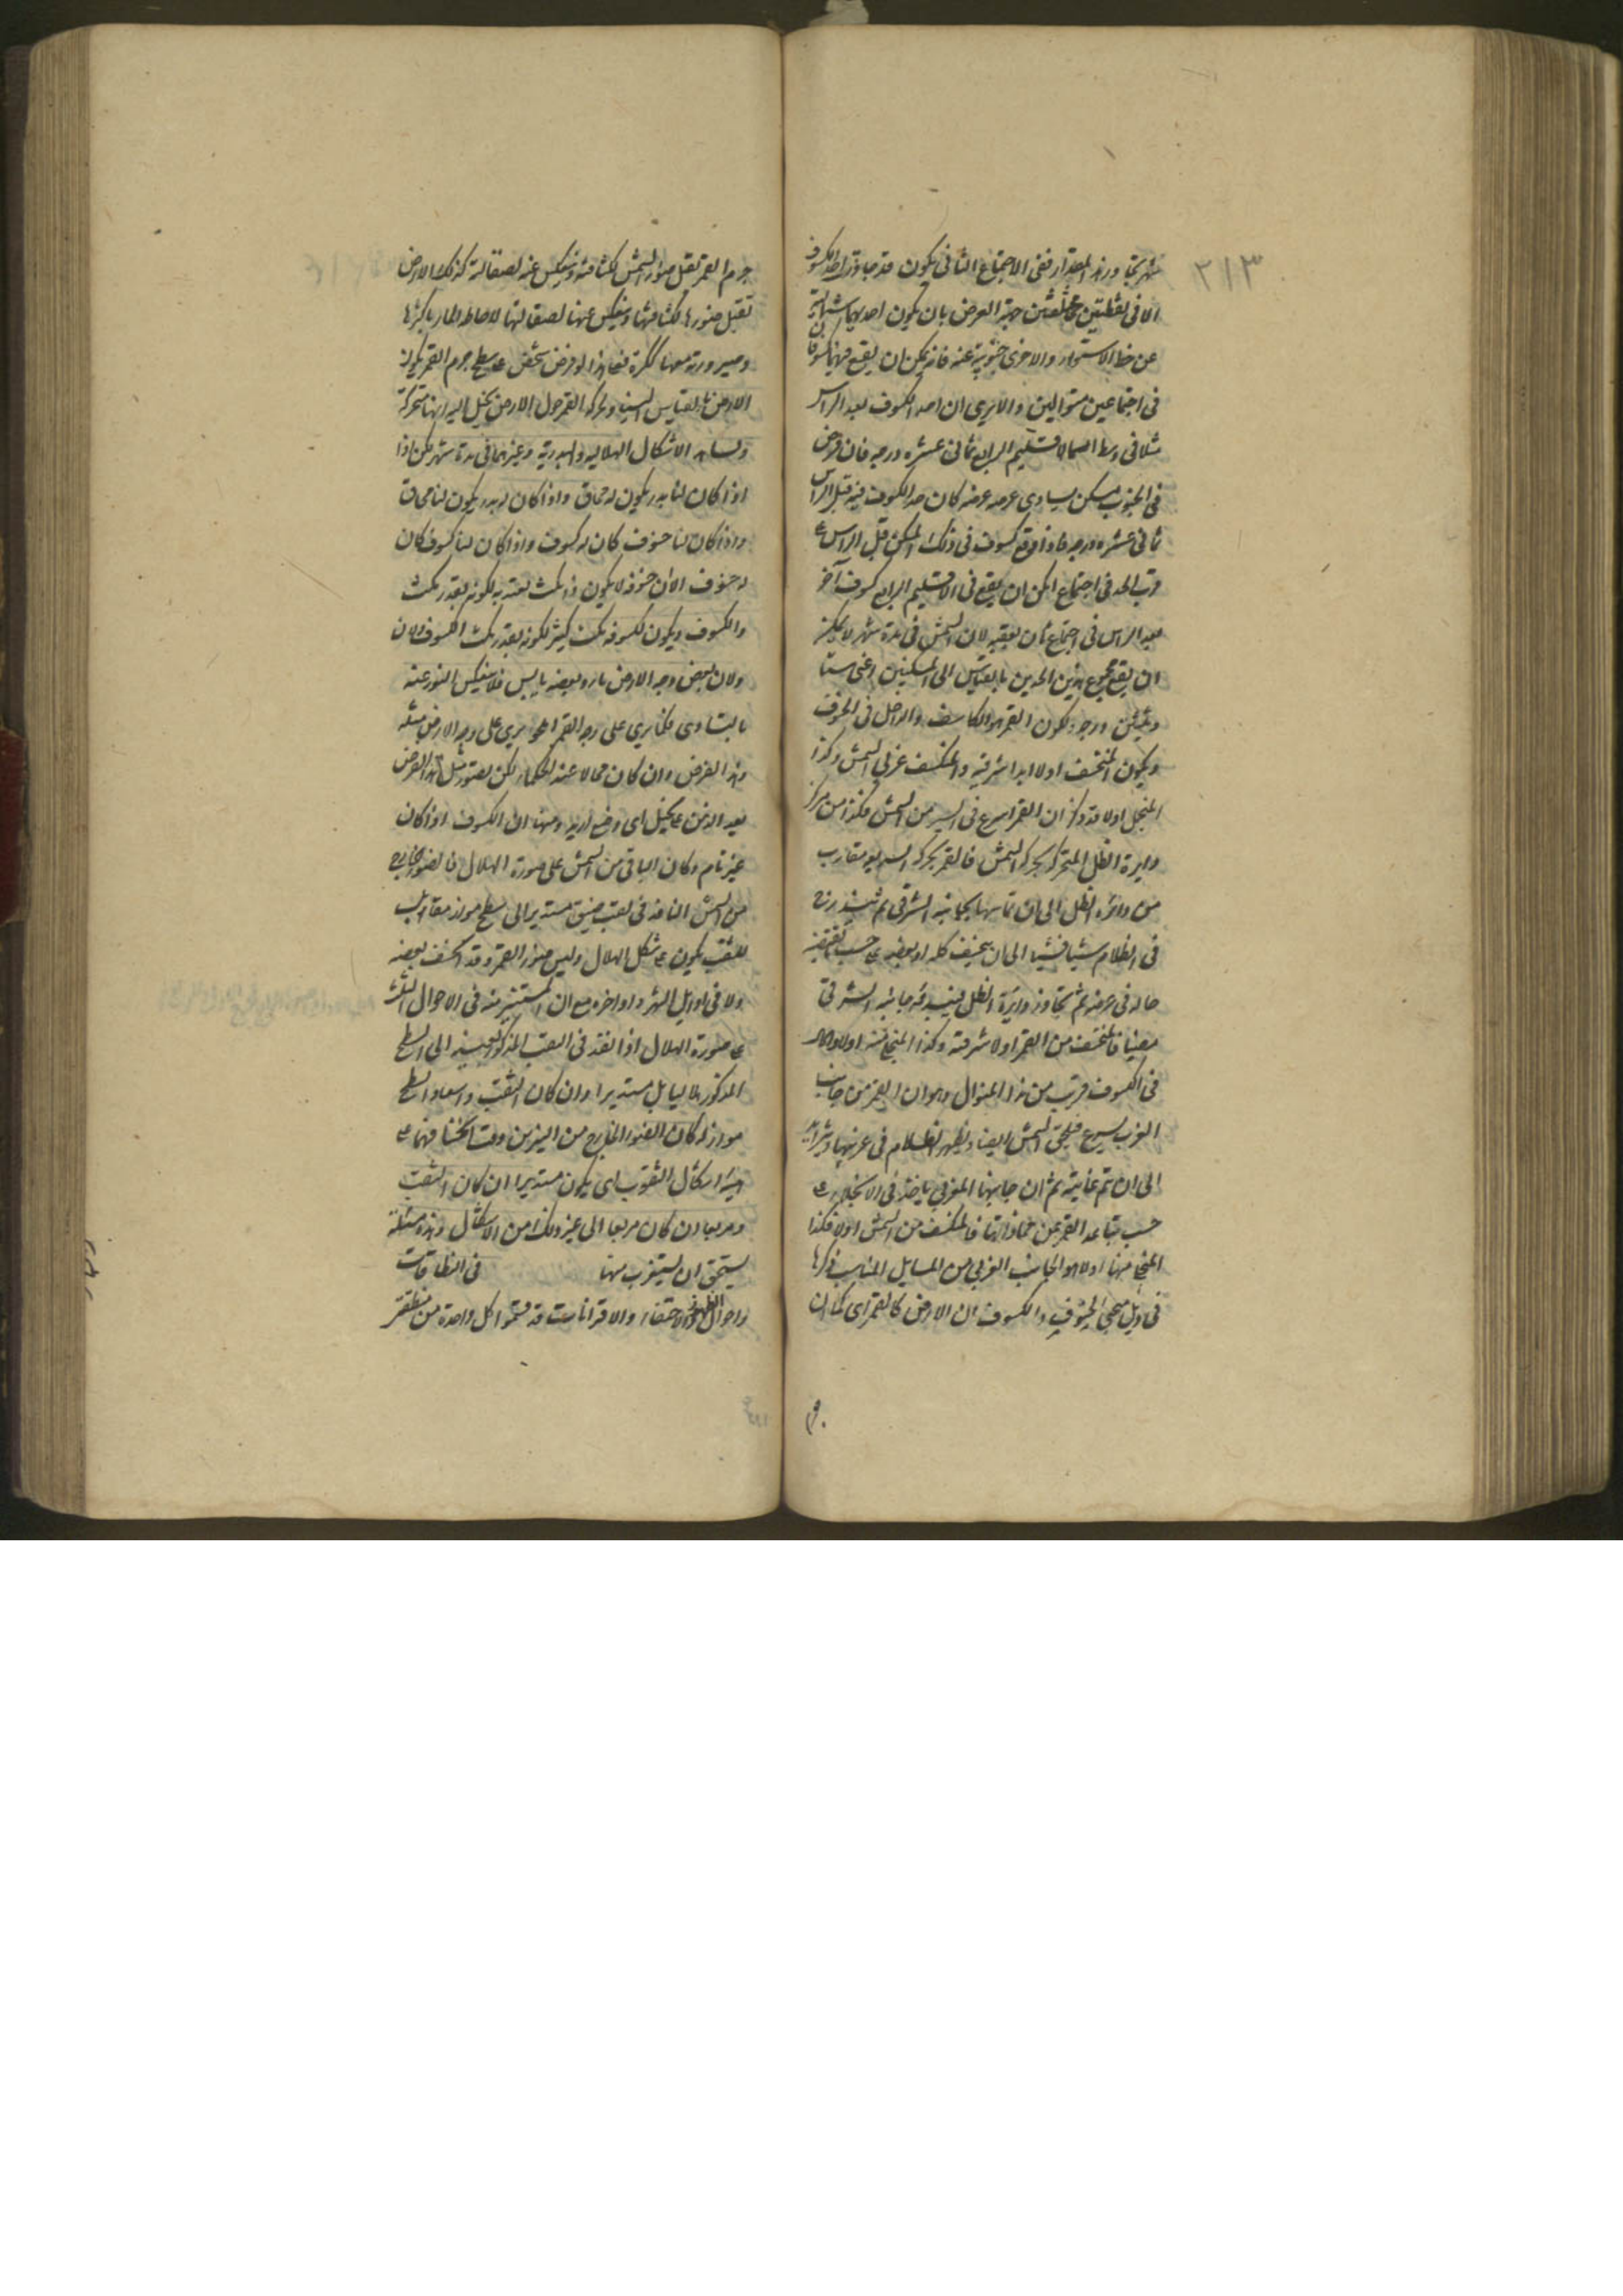 ٣١٣
شهر يتجاوز هذا المقدار ففي الاجتماع الثاني يكون قد جاوزا حد الكسوف
الا في نقطتين مختلفتين جهة العرض بان يكون احديهما شمالية
عن خط الاستواء والاخرى جنوبية عنه فانه يمكن ان يقع فيهما كسوفان
في اجتماعين متواليين والا يرى ان احد الكسوف بعد الراس
مثلا في وسط الاقليم الرابع ثماني عشره درجه فان فرض
في الجنوب مسكن يساوى عرضه عرضه كان حد الكسوف فيه قبل الراس
ثماني عشره درجه فاذا وقع كسوف في ذلك المسكن قبل الراس ع
قرب الحد في اجتماع امكن ان يقع في الاقليم الرابع كسوف آخر
بعد الراس في اجتماع ثان يعقبه لان الشمس في مدة شهر لا يمكنه
ان يقع مجموع هذين الحدين بالقياس الى المسكنين اعنى ستا
وثلثين درجه ولكون القمر هو الكاسف والداخل في الخسوف
ويكون المنخسف اولا ابدا شرقيه والمنكسف غربى الشمس وكذا
المنجلى اولا قد ذكر ان القمر اسرع في السير من الشمس فكذا من مركز
دايرة الظل المتحرك بحركة الشمس فالقمر بحركته السريعه يقارب
من دائرة الظل الى ان تماسها بجانبه الشرقى ثم يتدرج
في الظلام شيا فشيا الى ان ينخسف كله او بعضه ع حسب ما يقتضيه
حاله في عرضه ثم يتجاوز دايرة الظل فيبتدى جانبه الشرقى
مضيئا فالمنخسف من القمر اولا شرقيه وكذا المنجلى منه اولا والامر
في الكسوف قريب من هذا المنوال وهو ان القمر من جانب
الغرب يسرع فيلحق الشمس ايضا ويظهر الظلام في غربها ويتزايد
الى ان تم غايته ثم ان جانبها الغربي ياخذ في الانجلاء ع
حسب تباعد القمر عن محاذاتها فالمنكسف من الشمس اولا وكذا
المنجلى منها اولا هو الجانب الغربي من المسايل المناسب ذكرها
في ذيل مبحثى الخسوف والكسوف ان الارض كالقمر اى كما ان
جرم القمر يقبل ضوء الشمس لكثافته وينعكس عنه لصقالته كذلك الارض
تقبل ضوءها لكثافتها وينعكس عنها لصقالتها لاحاطه الماء باكثرها
وصيرورته معها ككرة فعلى هذا لو فرض شخص ع سطح جرم القمر يكون
الارض بالقياس اليه ولحركة القمر حول الارض يخيل اليه انها متحركة
ويشاهد الاشكال الهلاليه والبدريه وغيرهما في مدة شهر لكن اذا
اذا كان لنا بدر يكون له محاق واذا كان له بدر يكون لنا محاق
واذا كان لنا خسوف كان له كسوف واذا كان لنا كسوف كان
له خسوف الا ان خسوفه لا يكون ذا مكث يعتد به لكونه بقدر مكث
الكسوف ويكون لكسوفه مكث كثير لكونه بقدر مكث الخسوف الان
ولان بعض وجه الارض ماء وبعضه يابس فلا ينعكس النور عنه
بالتساوى فكما يرى على وجه القمر المحو يرى على وجه الارض مثله
وهذا الفرض وان كان محالا عند الحكماء لكن تصور مثل هذا الفرض
يعد الذهن ع تخيل اى وضع اريد ومنها ان الكسوف اذا كان
غير تام وكان الباقى من الشمس على صورة الهلال فالضوء الخارج
من الشمس النافذ في ثقب ضيق مستدير الى سطح مواز مقابل
للثقب يكون ع شكل الهلال وليس ضوء القمر وقد انخسف بعضه
ولا في اوايل الشهر واواخره مع ان المستنير منه في الاحوال الثلاث
ع صورة الهلال اذا نفذ في الثقب المذكور كهيئته الى السطح
المذكور هلاليا بل مستديرا وان كان الثقب واسعا والسطح
موازيا له كان الضوء الخارج من النيرين وقت انخسافهما ع
هيئة اشكال الثقوب اى يكون مستديرا ان كان الثقب
ومربعا ان كان مربعا الى غير ذلك من الاشكال وهذه مسئلة
يستحق ان يستغرب منها في النطاقات
واحوال الظهور والاختفاء والاقترانات قد قسموا كل واحدة من منطقة